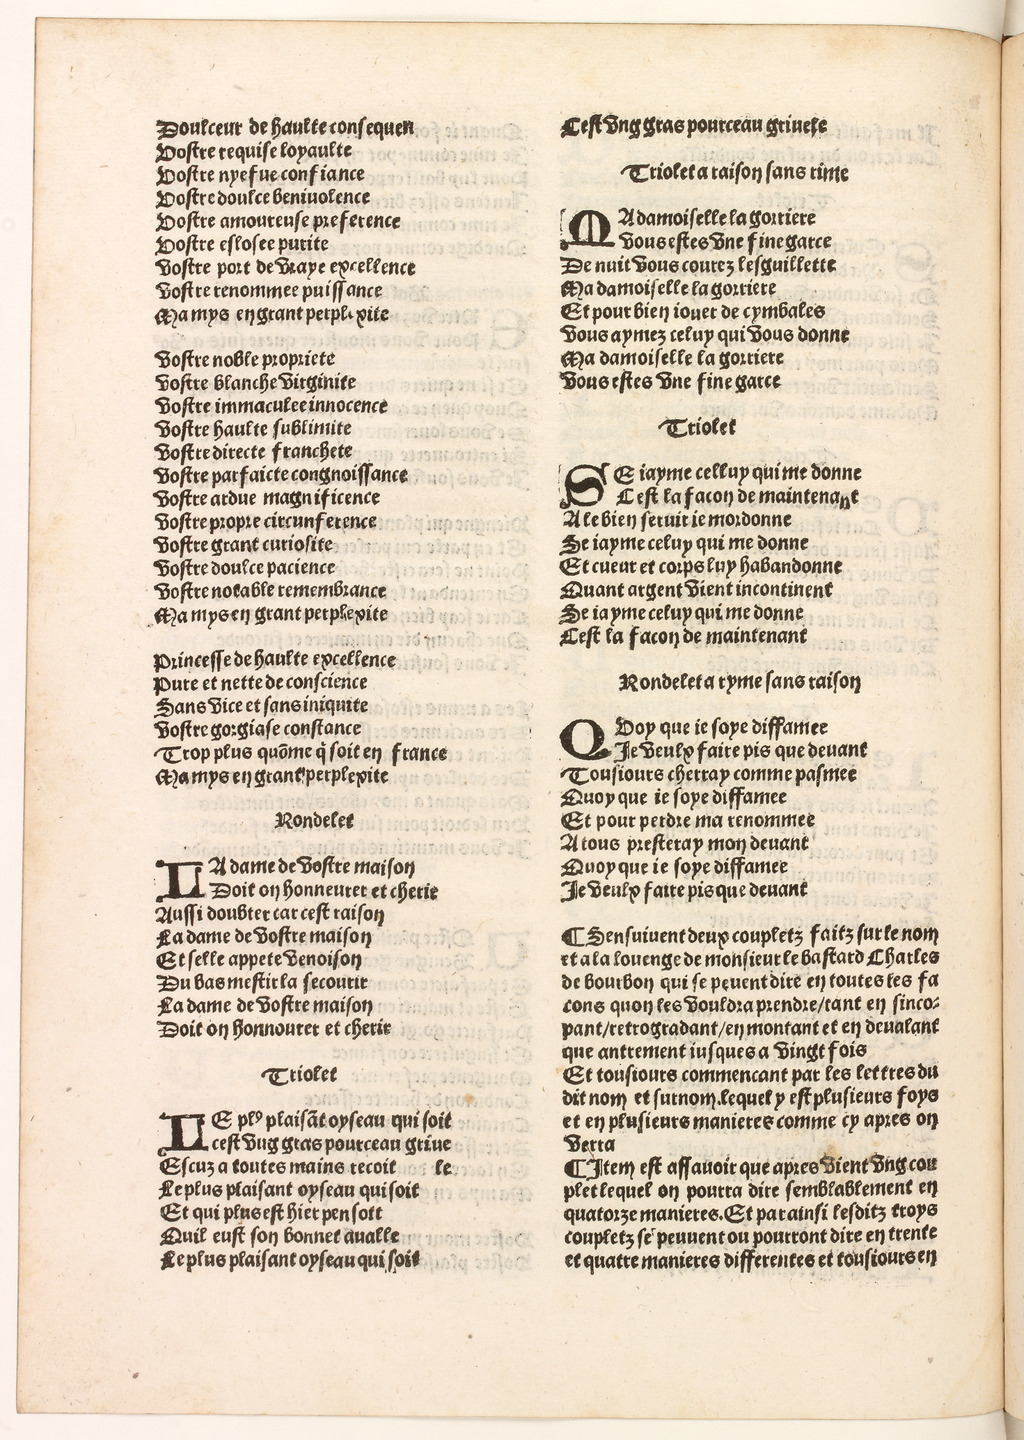 Doulceur de haulte consequen
Vostre requise loyaulte
Vostre nyefue confiance
Vostre doulce beniuolence
Vostre amoureuse preference
Vostre eslosee purite
Vostre port de vraye excellence
Vostre renommee puissance
Ma mys en grant perplexite
Vostre noble propriete
Vostre blanche virginite
Vostre immaculee innocence
Vostre haulte sublimite
Vostre directe franchete
Vostre parfaicte congnoissance
Vostre ardue magnificence
Vostre propre circunference
Vostre grant curiosite
Vostre doulce pacience
Vostre notable remembrance
Ma mys en grant perplexite
Princesse de haulte excellence
Pure et nette de conscience
Sans vice et sans iniquite
Vostre gorgiase constance
Trop plus quõme q̃ soit en france
Ma mys en grant perplexite
Rondelet
LA dame de vostre maison
Doit on honneurer et cherir
Aussi doubter car cest raison
La dame de vostre maison
Et selle appete venoison
Du bas mestir la secourir
La dame de vostre maison
Doit on honnourer et cherir
Triolet
LE plꝰ plaisãt oyseau qui soit
cest vug gras pourceau griue
Escuz a toutes mains recoit le
Le plus plaisant oyseau qui soit
Et qui plus est hier pensoit
Quil eust son bonnet aualle
Le plus plaisant oyseau qui soit
Cest vng gras pourceau griuele
Triolet a raison sans rime
MA damoiselle la gorriere
Vous estes vne fine garce
De nuit vous courez lesguillette
Ma damoiselle la gorriere
Et pour bien iouer de cymbales
Vous aymez celuy qui vous donne
Ma damoiselle la gorriere
Vous estes vne fine garce
Triolet
SE iayme celluy qui me donne
Cest la facon de maintenant
A le bien seruir ie mordonne
Se iayme celuy qui me donne
Et cueur et corps luy habandonne
Quant argent vient incontinent
Se iayme celuy qui me donne
Cest la facon de maintenant
Rondelet a ryme sans raison
QVoy que ie soye diffamee
Je veulx faire pis que deuant
Tousiours cherray comme pasmee
Quoy que ie soye diffamee
Et pour perdre ma renommee
A tous presteray mon deuant
Quoy que ie soye diffamee
Je veulx faire pis que deuant
¶ Sensuiuent deux coupletz faitz sur le nom
et a la louenge de monsieur le bastard Charles
de bourbon qui se peuent dire en toutes les fa
cons quon les vouldra prendre/tant en sinco-
pant/retrogradant/en montant et en deualant
que antrement iusques a vingt fois
Et tousiours commencant par les lettres du
dit nom et surnom.lequel y est plusieurs foys
et en plusieurs manieres comme cy apres on
verra
¶ Item est assauoir que apres vient vng cou
plet lequel on pourra dire semblablement en
quatorze manieres. Et par ainsi lesditz troys
coupletz se peuuent ou pourront dire en trente
et quatre manieres differentes et tousiours en